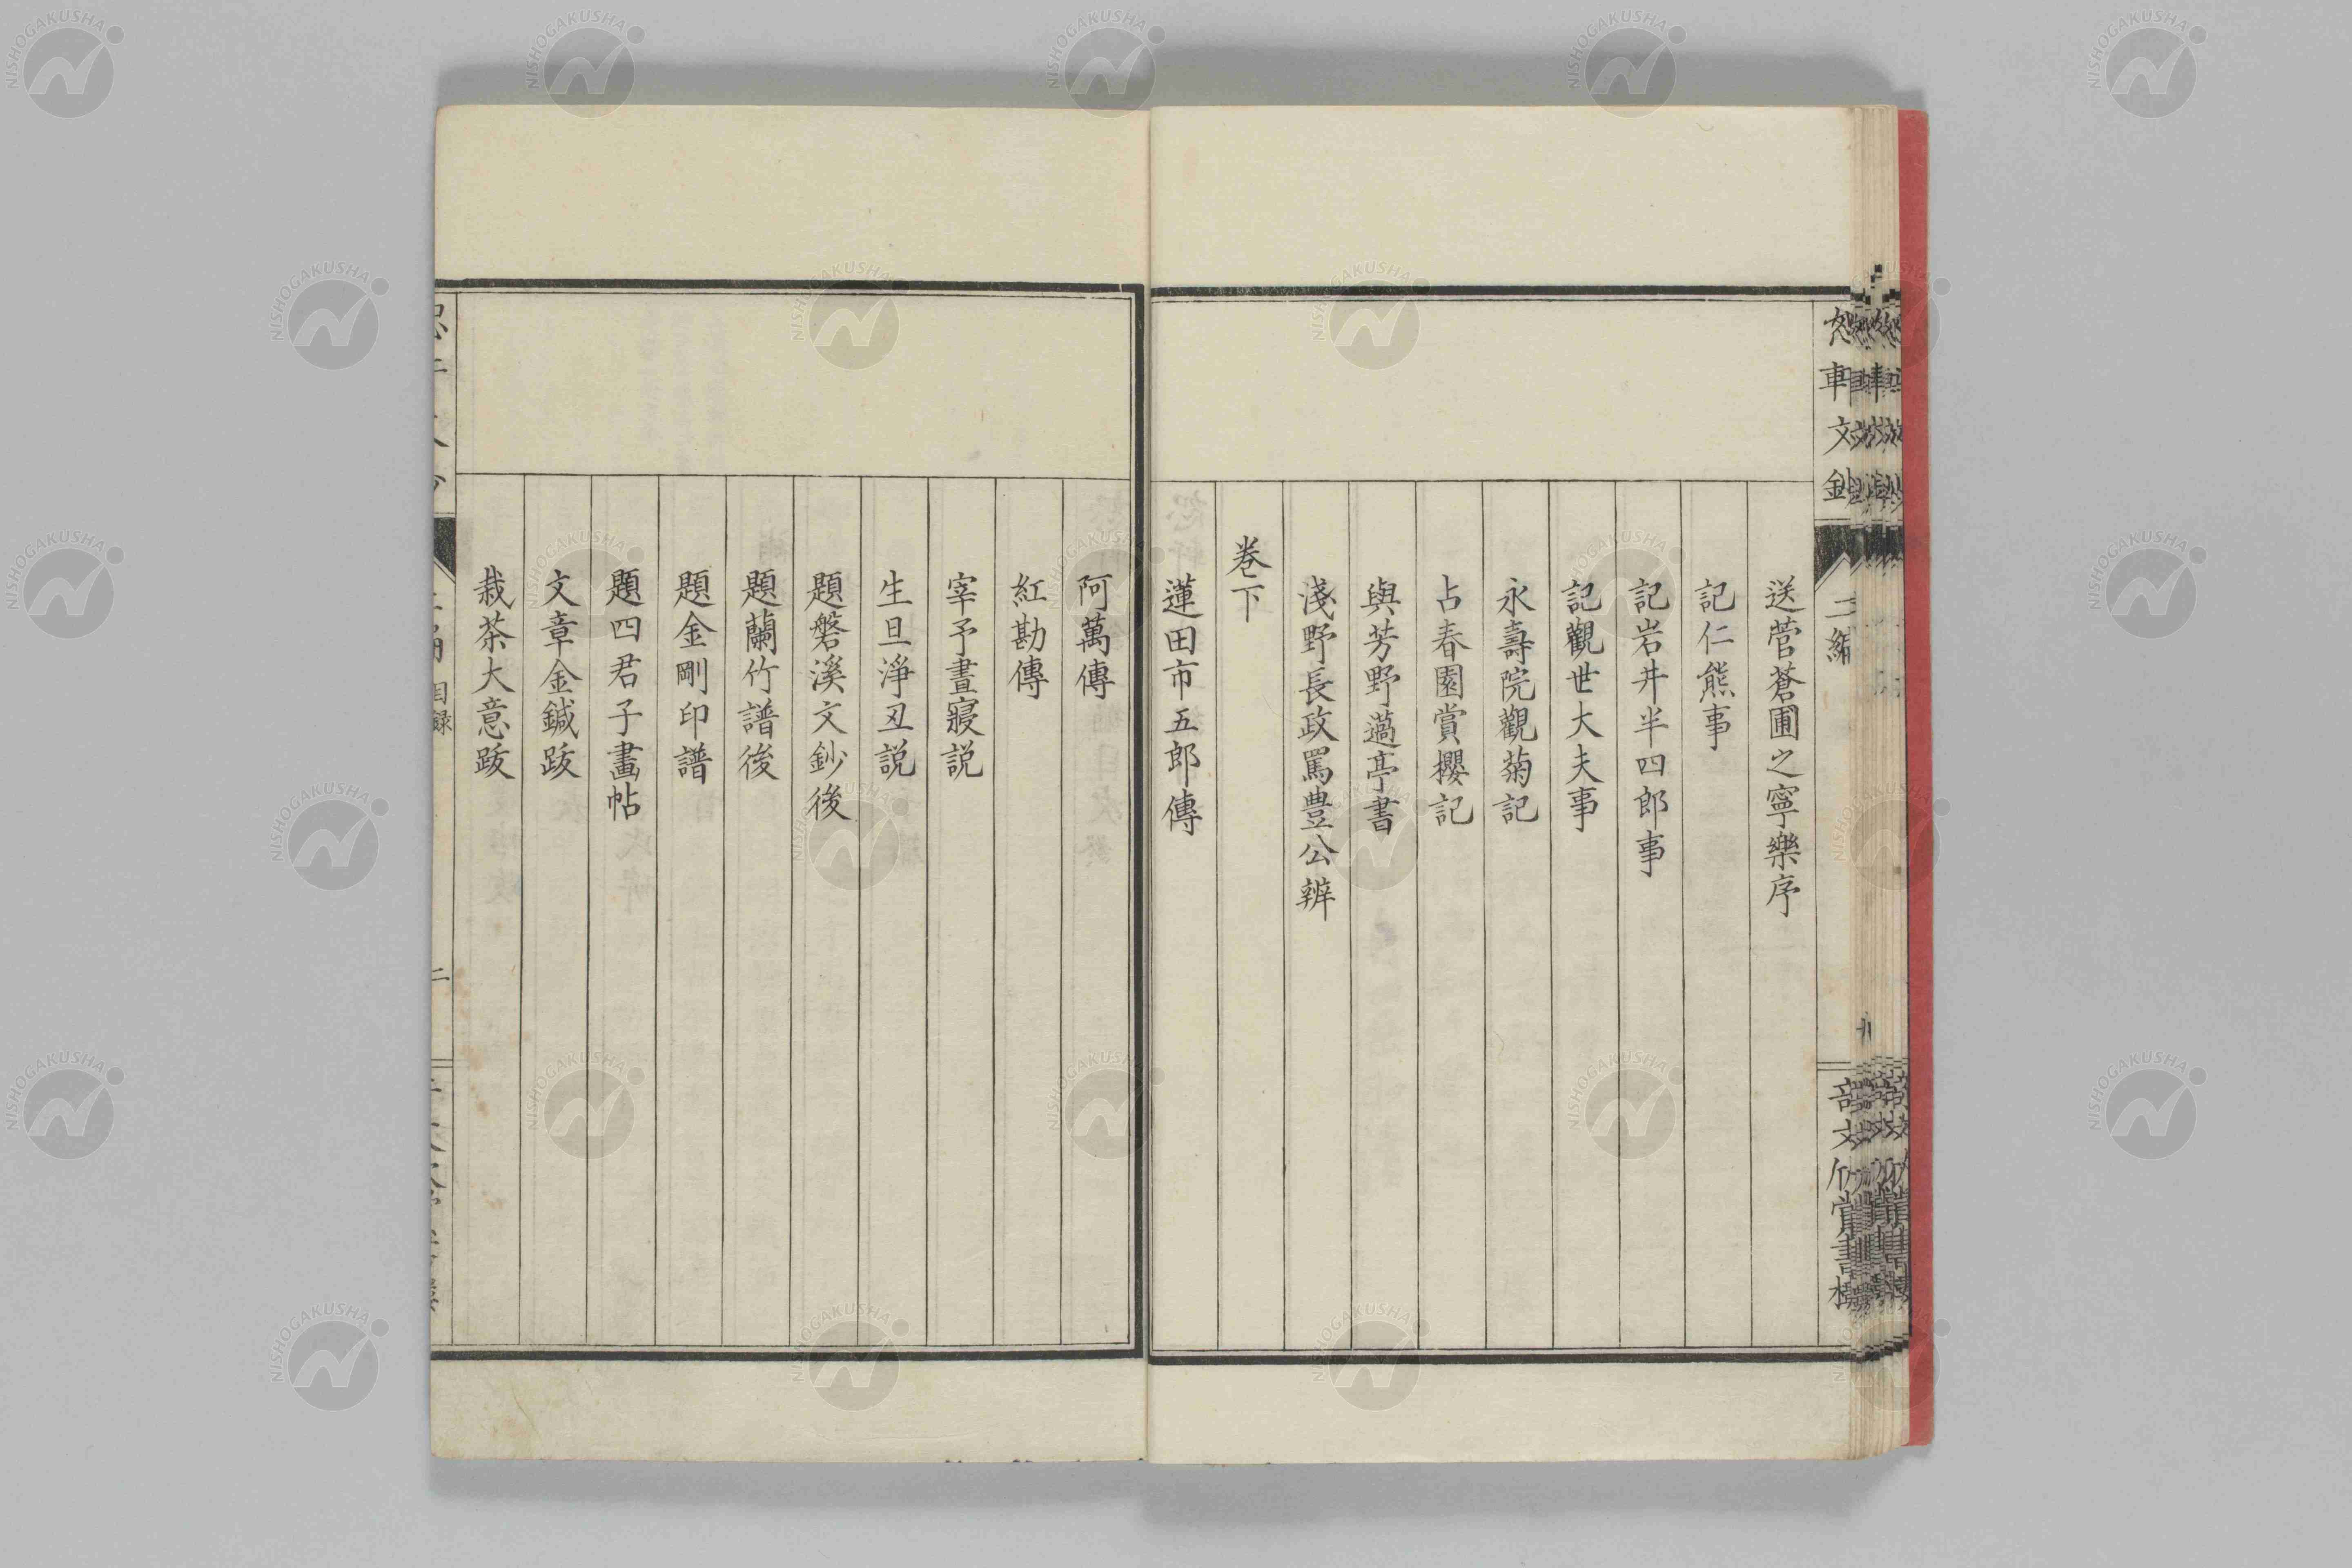 送菅蒼圃之寧樂序
記仁熊事
記岩井半四郎事
記觀世大夫事
永壽院觀菊記
占春園賞櫻記
與芳野邁亭書
淺野長政罵豊公辨
卷下
蓮田市五郎傳
阿萬傳
紅勘傳
宰予晝寢説
生旦淨丑説
題磐溪文鈔後
題蘭竹譜後
題金剛印譜
題四君子畫帖
文章金鍼跋
栽茶大意跋
目録
二
NISHOGAKUSHA